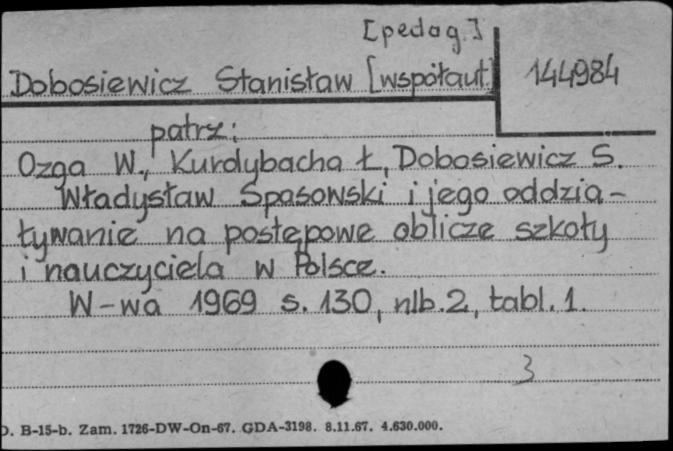 [pedag.]
Dobosiewicz Stanisław [współaut.] 144984
patrz:
Ozga W., Kurdybacha Ł., Dobosiewicz S.
Władysław Spasowski i jego oddzia-
ływanie na postępowe oblicze szkoły
i nauczyciela w Polsce.
W-wa 1969 s. 130, nlb. 2, tabl. 1.
3
D. B-15-b. Zam. 1726-DW-On-67. GDA-3198. 8.11.67. 4.630.000.